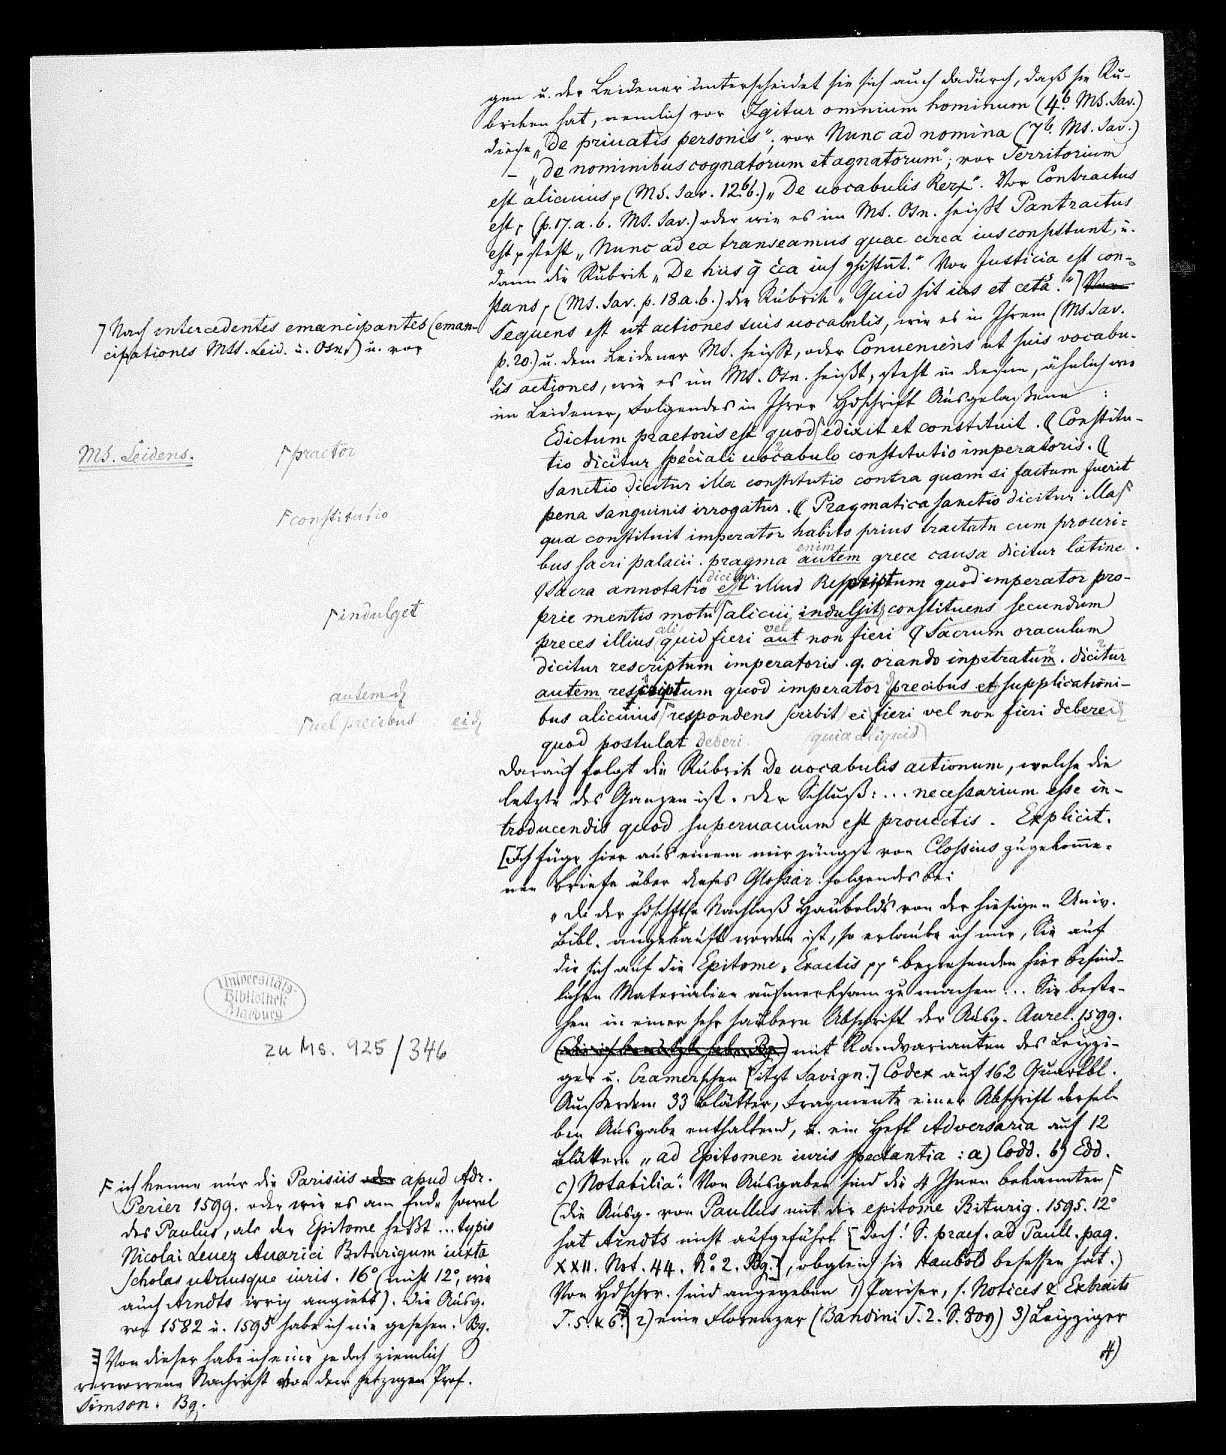 gen u. der Leidener unterscheidet sie sich auch dadurch, daß sie Ru-
briken hat, nemlich vor Igitur omnium hominum (4.b MS. Sav.)
diese „De priuatis personis“; vor Nunc ad nomina (7b. MS. Sav.)
– „De nominibus cognatorum et agnatorum“; vor Territorium
est alicuius, (MS. Sav. 12.b.) „De uocabulis Rerx“. Vor Contractus
est, (p. 17. a. b. MS. Sav.) oder wie es im MS. Osn. heißt Pantractus
est, steht „Nunc ad ea transeamus quae circa ius consistunt, u.
dann die Rubrik „De hiis q̄ c̄ca ius ꝯsistūt.“ Vor Justicia est con-
stans, (MS. Sav. p. 18. a. b.) die Rubrik „Quid sit ius et cetā.“ ] Vor
Sequens est ut actiones suis uocabulis, wie es in Ihrem (MS Sav.
p. 20.) u. dem Leidener MS. heißt, oder Conueniens ut suis vocabu-
lis actiones, wie es im MS. Osn. heißt, steht in diesem, ähnlich wie
im Leidener, folgendes in Ihrer Hdschrift Ausgelaßene :
Edictum praetoris est quod edixit et constituit. ₡ Constitu-
tio dicitur speciali uocabulo constitutio imperatoris. ₡
Sanctio dicitur illa constitutio contra quam si factum fuerit
pena sanguinis irrogatur. ₡ Pragmatica sanctio dicitur illa
qua constituit imperator habito prius tractatu cum proceri-
bus sacri palacii. pragma autem grece causa dicitur latine.
enim
₡ Sacra annotatio est illud Rescriptum quod imperator pro-
dicitur
prie mentis motu alicui indulsit constituens secundum
preces illius quid fieri aut non fieri ₡ Sacrum oraculum
ali vel
dicitur rescriptum imperatoris. q. orando inpetratum. dicitur
autem rescriptum quod imperator precibus et supplicationi-
bus alicuius respondens scribit ei fieri vel non fieri debere
quod postulat deberi. (quia aliquid)
Darauf folgt die Rubrik De uocabulis actionum, welche die
letzte des Ganzen ist. Der Schluß: ... necessarium esse in-
troducendis quod superuacuum est prouectis. Explicit.
[Ich füge hier aus einem mir jüngst von Clossius zugekomme-
nen Briefe über dieses Glossar folgendes bei
„Da der hdschftche Nachlaß Haubolds von der hiesigen Univ.
Bibl. angekauft worden ist, so erlaube ich mir, Sie auf
die sich auf die Epitome „Exactis pp“ beziehenden hier befind-
lichen Materialien aufmerksam zu machen ... Sie beste-
hen in einer sehr saubern Abschrift der Ausg. Aurel. 1599.
mit Randvarianten des Leipzi-
ger u. Cramerschen [itzt Savign.] Codex auf 162 Quartbl.
Außerdem 33 Blätter, Fragmente einer Abschrift dersel-
ben Ausgabe enthaltend, u. ein Heft Adversaria auf 12
Blättern „ad Epitomen iuris spectantia : a) Codd. b) Edd.
c) Notabilia.“ Von Ausgaben sind die 4 Ihnen bekannten
(die Ausg. von Paullus mit der epitome Biturig. 1595. 12°
hat Arndts nicht aufgeführt [doch! S. praef. ad Paull. pag.
XXII. Not. 44. No. 2. Bg.], obgleich sie Haubold besessen hat.)
Von Hdschrr. sind angegeben 1) Pariser, s. Notices & Extraits
T. 5. & 6. 2) eine Florenzer (Bandini T. 2. S. 809) 3) Leipziger
4)
Nach intercedentes emancipantes (eman-
cipationes MSS. Leid. u. Osn.) u. vor
MS. Leidens.
praetor
constitutio
indulget
autem
uel precibus ei
Universitäts-
Bibliothek
Marburg
zu Ms. 925/346
ich kenne nur die Parisiis apud Adr.
Perier 1599. oder wie es am Ende sowol
des Paulus, als der Epitome heißt ... typis
Nicolai Leuez Auarici Biturigum iuxta
scholas utriusque iuris. 16° (nicht 12°, wie
auch Arndts irrig angiebt). Die Ausg.
von 1582 u. 1595 habe ich nie gesehen. Bg.
Von dieser habe ich eine jedoch ziemlich
verworrene Nachricht von dem hetzigen Prof.
Simson. Bg.